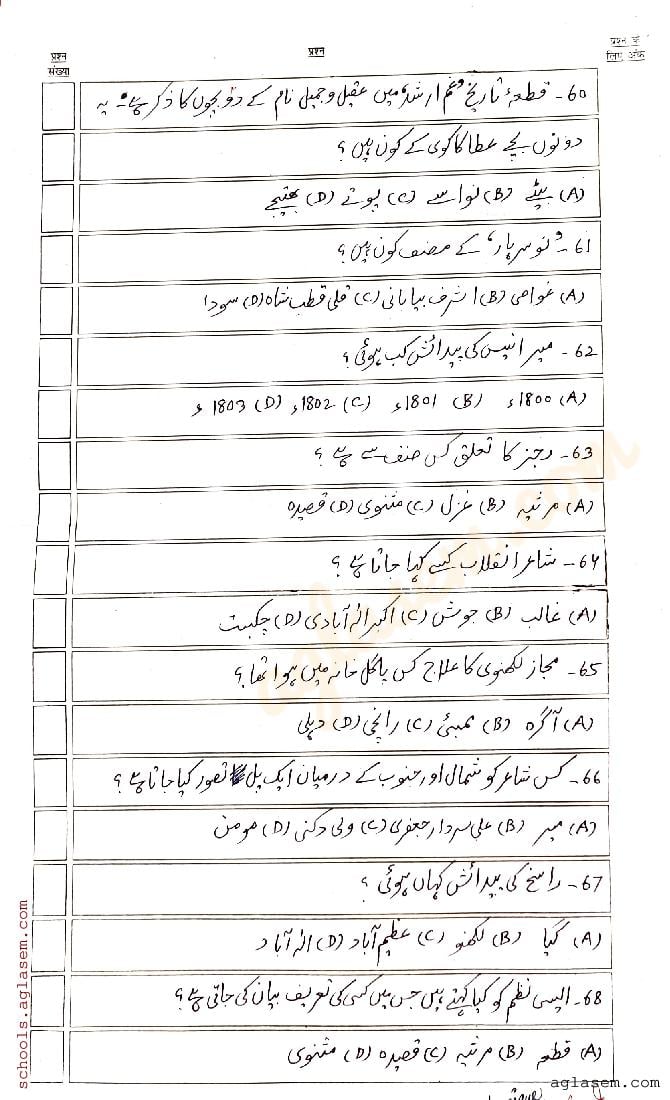 प्रश्न संख्या
प्रश्न
प्रश्न के लिए अंक
60- قطعۂ تاریخ 'غم ارشد' میں عقیل و جمیل نام کے دو بچوں کا ذکر ہے۔ یہ
دونوں بچے عطا کاکوی کے کون ہیں؟
(A) بیٹے (B) نواسے (C) پوتے (D) بھتیجے
61- 'نوسرہار' کے مصنف کون ہیں؟
(A) غواصی (B) اشرف بیابانی (C) قلی قطب شاہ (D) سودا
62- میر انیس کی پیدائش کب ہوئی؟
(A) 1800ء (B) 1801ء (C) 1802ء (D) 1803ء
63- رجز کا تعلق کس صنف سے ہے؟
(A) مرثیہ (B) غزل (C) مثنوی (D) قصیدہ
64- شاعر انقلاب کسے کہا جاتا ہے؟
(A) غالب (B) جوش (C) اکبر الہ آبادی (D) چکبست
65- مجاز لکھنوی کا علاج کس پاگل خانہ میں ہوا تھا؟
(A) آگرہ (B) ممبئی (C) رانچی (D) دہلی
66- کس شاعر کو شمال اور جنوب کے درمیان ایک پل تصور کیا جاتا ہے؟
(A) میر (B) علی سردار جعفری (C) ولی دکنی (D) مومن
67- راسخ کی پیدائش کہاں ہوئی؟
(A) گیا (B) لکھنو (C) عظیم آباد (D) الہ آباد
68- ایسی نظم کو کیا کہتے ہیں جس میں کسی کی تعریف بیان کی جاتی ہے؟
(A) قطعہ (B) مرثیہ (C) قصیدہ (D) مثنوی
schools.aglasem.com
aglasem.com
aglasem.com